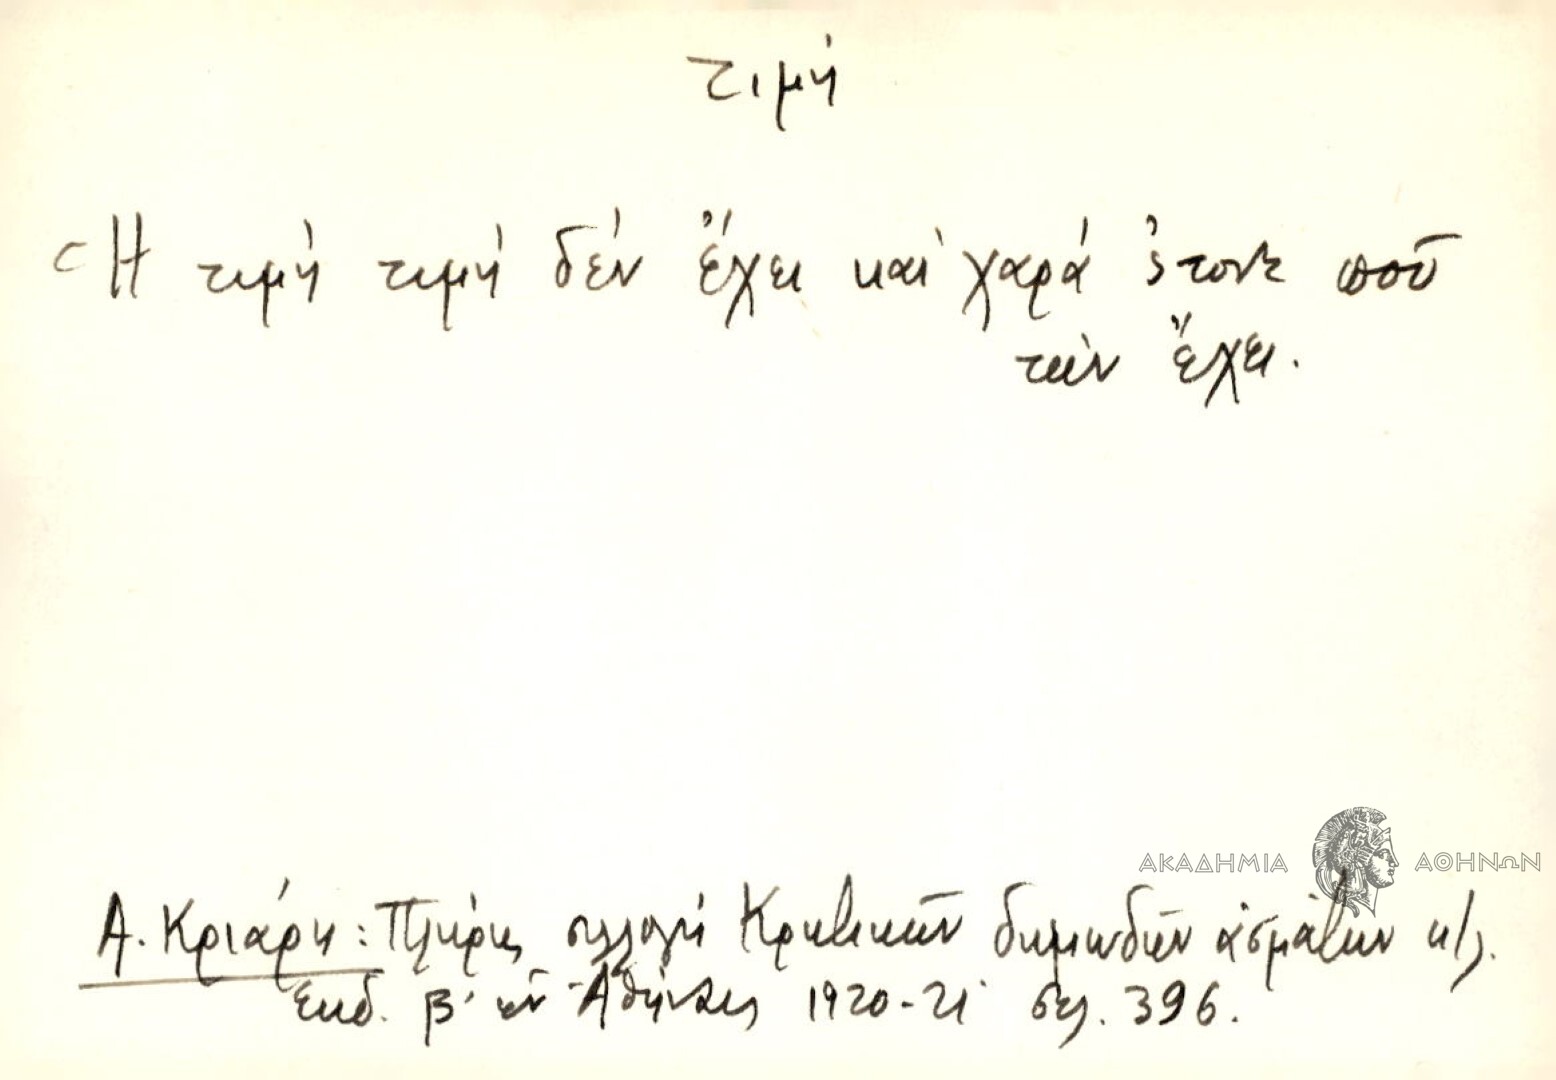 τιμή
Ἡ τιμή τιμή δέν ἔχει καί χαρά 'ς τονε ποῦ
τήν ἔχει.
ΑΚΑΔΗΜΙΑ ΑΘΗΝΩΝ
Α. Κριάρη: Πλήρης συλλογή Κρητικῶν δημωδῶν ἀσμάτων κ/λ.
Ἐκδ. β' ἐν Ἀθήναις 1920-21 σελ. 396.